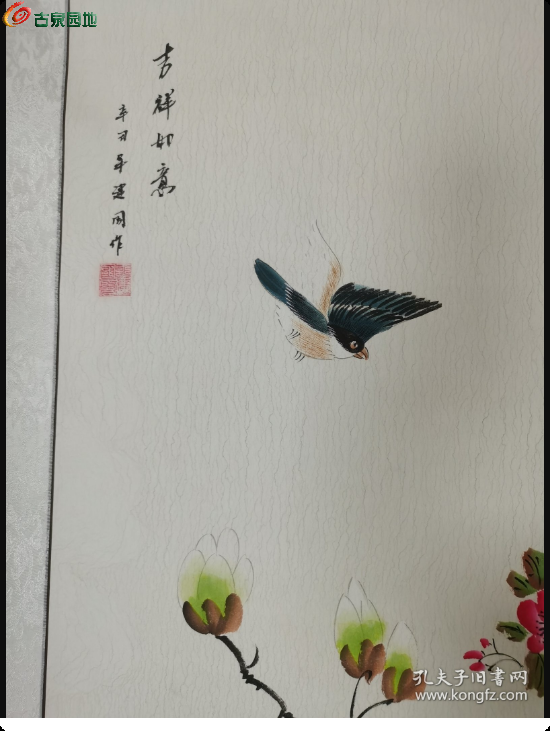 古泉园地
吉祥如意
辛丑年建国作
孔夫子旧书网
www.kongfz.com